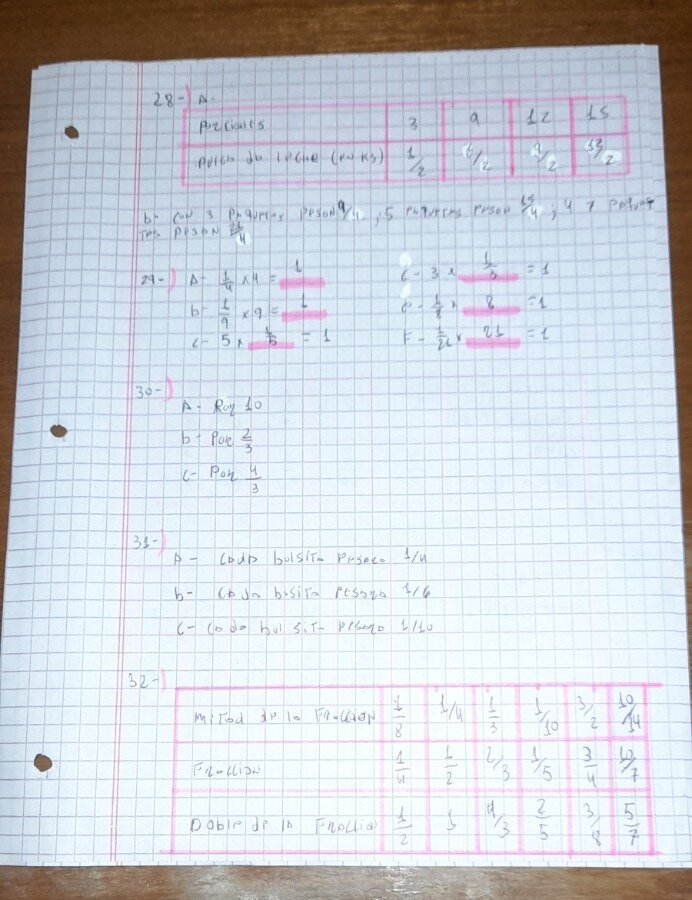 28-) A-
Porciones 3 9 12 15
Polvo de leche (en kg) 1/2 6/2 9/2 13/2
b- con 3 paquetes pesan 9/4 ; 5 paquetes pesan 15/4 ; y 7 paque-
tes pesan 21/4
29-) A- 1/4 x 4 = 1 3 x 1/3 = 1
b- 1/9 x 9 = 1 1/8 x 8 = 1
c- 5 x 1/5 = 1 F- 1/21 x 21 = 1
30-)
A- Por 10
b- Por 2/3
c- Por 4/3
31-)
A- Cada bolsita pesara 1/4
b- Cada bosita pesara 1/6
c- Cada bolsita pesara 1/10
32-)
Mitad de la Fraccion 1/8 1/4 1/3 1/10 3/2 10/14
Fraccion 1/4 1/2 2/3 1/5 3/4 10/7
Doble de la Fraccio 1/2 1 4/3 2/5 3/8 5/7